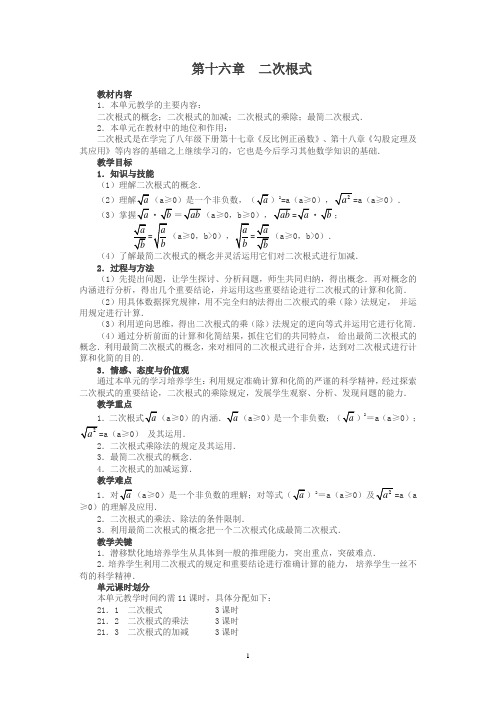 第十六章　二次根式
教材内容
1．本单元教学的主要内容：
二次根式的概念；二次根式的加减；二次根式的乘除；最简二次根式．
2．本单元在教材中的地位和作用：
二次根式是在学完了八年级下册第十七章《反比例正函数》、第十八章《勾股定理及
其应用》等内容的基础之上继续学习的，它也是今后学习其他数学知识的基础．
教学目标
1．知识与技能
（1）理解二次根式的概念．
（2）理解√a（a≥0）是一个非负数，（√a）²=a（a≥0），√a²=a（a≥0）．
（3）掌握√a·√b＝√ab（a≥0，b≥0），√ab=√a·√b；
√a/√b=√(a/b)（a≥0，b>0），√(a/b)=√a/√b（a≥0，b>0）．
（4）了解最简二次根式的概念并灵活运用它们对二次根式进行加减．
2．过程与方法
（1）先提出问题，让学生探讨、分析问题，师生共同归纳，得出概念．再对概念的
内涵进行分析，得出几个重要结论，并运用这些重要结论进行二次根式的计算和化简．
（2）用具体数据探究规律，用不完全归纳法得出二次根式的乘（除）法规定，并运
用规定进行计算．
（3）利用逆向思维，得出二次根式的乘（除）法规定的逆向等式并运用它进行化简．
（4）通过分析前面的计算和化简结果，抓住它们的共同特点，给出最简二次根式的
概念．利用最简二次根式的概念，来对相同的二次根式进行合并，达到对二次根式进行计
算和化简的目的．
3．情感、态度与价值观
通过本单元的学习培养学生：利用规定准确计算和化简的严谨的科学精神，经过探索
二次根式的重要结论，二次根式的乘除规定，发展学生观察、分析、发现问题的能力．
教学重点
1．二次根式√a（a≥0）的内涵．√a（a≥0）是一个非负数；（√a）²＝a（a≥0）；
√a²=a（a≥0） 及其运用．
2．二次根式乘除法的规定及其运用．
3．最简二次根式的概念．
4．二次根式的加减运算．
教学难点
1．对√a（a≥0）是一个非负数的理解；对等式（√a）²＝a（a≥0）及√a²=a（a
≥0）的理解及应用．
2．二次根式的乘法、除法的条件限制．
3．利用最简二次根式的概念把一个二次根式化成最简二次根式．
教学关键
1．潜移默化地培养学生从具体到一般的推理能力，突出重点，突破难点．
2．培养学生利用二次根式的规定和重要结论进行准确计算的能力，培养学生一丝不
苟的科学精神．
单元课时划分
本单元教学时间约需11课时，具体分配如下：
21．1　二次根式　3课时
21．2　二次根式的乘法　3课时
21．3　二次根式的加减　3课时
1